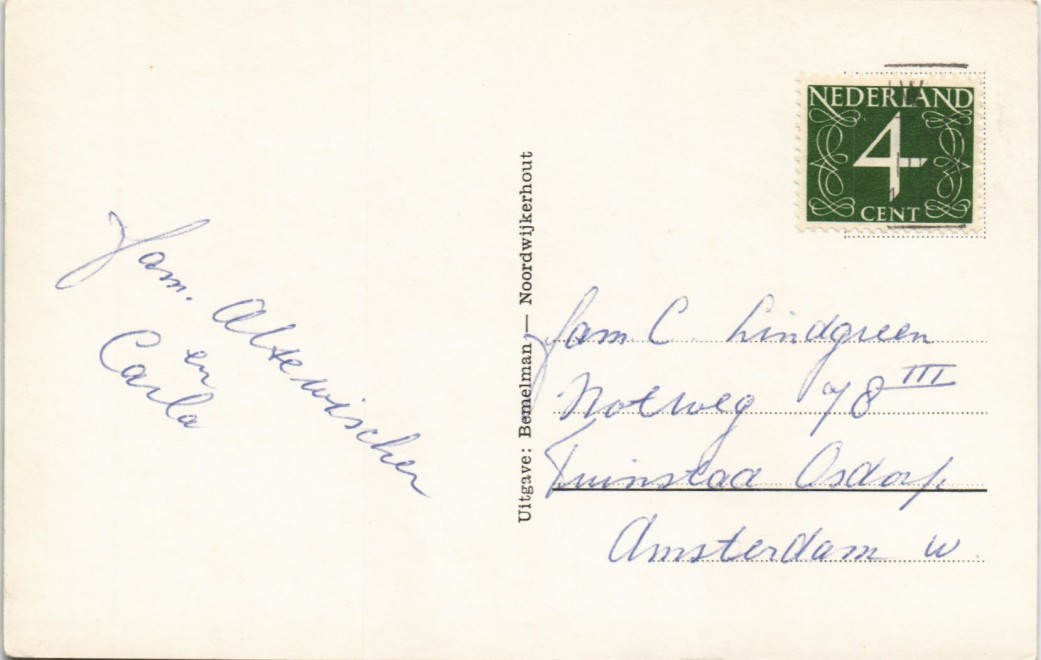 Fam. Altewischer
en
Carla
Uitgave: Bemelman — Noordwijkerhout
NEDERLAND
4
CENT
Fam C. Lindgreen
Notweg 78 III
Tuinstad Osdorp.
Amsterdam W.